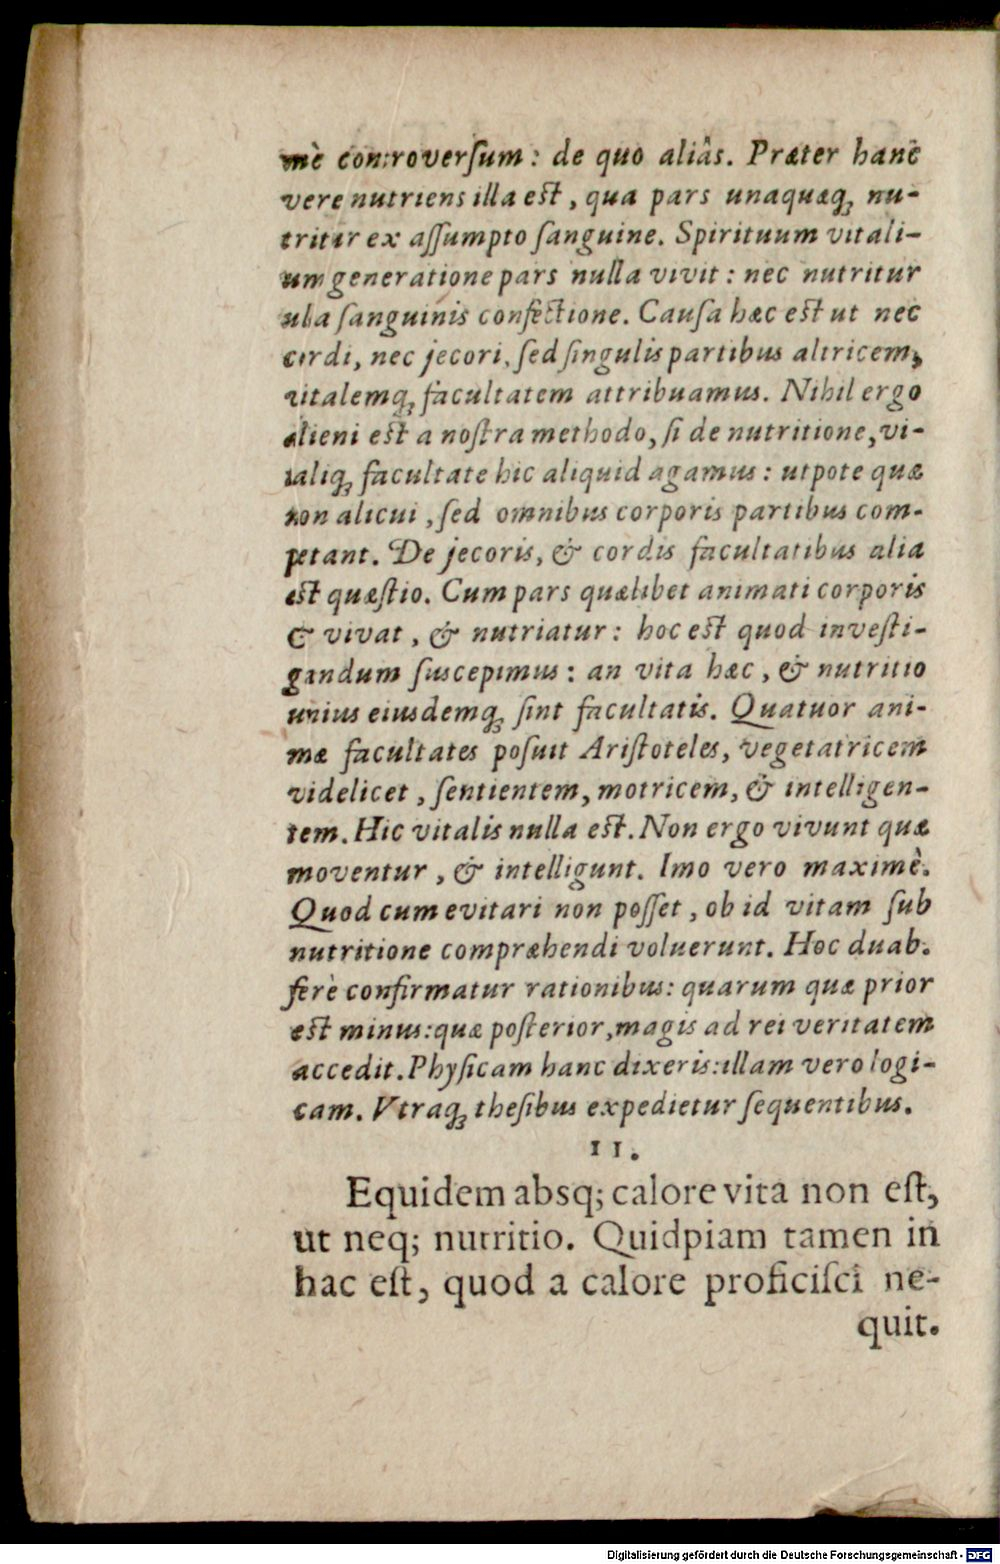 mè controverſum: de quo aliâs. Præter hanc
vere nutriens illa eſt, qua pars unaquæq; nu-
tritur ex aſſumpto ſanguine. Spirituum vitali-
um generatione pars nulla vivit: nec nutritur
ulla ſanguinis confectione. Cauſa hæc eſt ut nec
cordi, nec jecori, ſed ſingulis partibus altricem,
vitalemq; facultatem attribuamus. Nihil ergo
alieni eſt a noſtra methodo, ſi de nutritione, vi-
taliq; facultate hic aliquid agamus: utpote quæ
non alicui, ſed omnibus corporis partibus com-
petant. De jecoris, & cordis facultatibus alia
eſt quæſtio. Cum pars quælibet animati corporis
& vivat, & nutriatur: hoc eſt quod inveſti-
gandum ſuscepimus: an vita hæc, & nutritio
unius eiusdemq; ſint facultatis. Quatuor ani-
mæ facultates poſuit Ariſtoteles, vegetatricem
videlicet, ſentientem, motricem, & intelligen-
tem. Hic vitalis nulla eſt. Non ergo vivunt quæ
moventur, & intelligunt. Imo vero maximè.
Quod cum evitari non poſſet, ob id vitam ſub
nutritione compræhendi voluerunt. Hoc duab.
ferè confirmatur rationibus: quarum quæ prior
eſt minus: quæ poſterior, magis ad rei veritatem
accedit. Phyſicam hanc dixeris: illam vero logi-
cam. Vtraq; theſibus expedietur ſequentibus.
II.
Equidem absq; calore vita non eſt,
ut neq; nutritio. Quidpiam tamen in
hac eſt, quod a calore proficiſci ne-
quit.
Digitalisierung gefördert durch die Deutsche Forschungsgemeinschaft - DFG